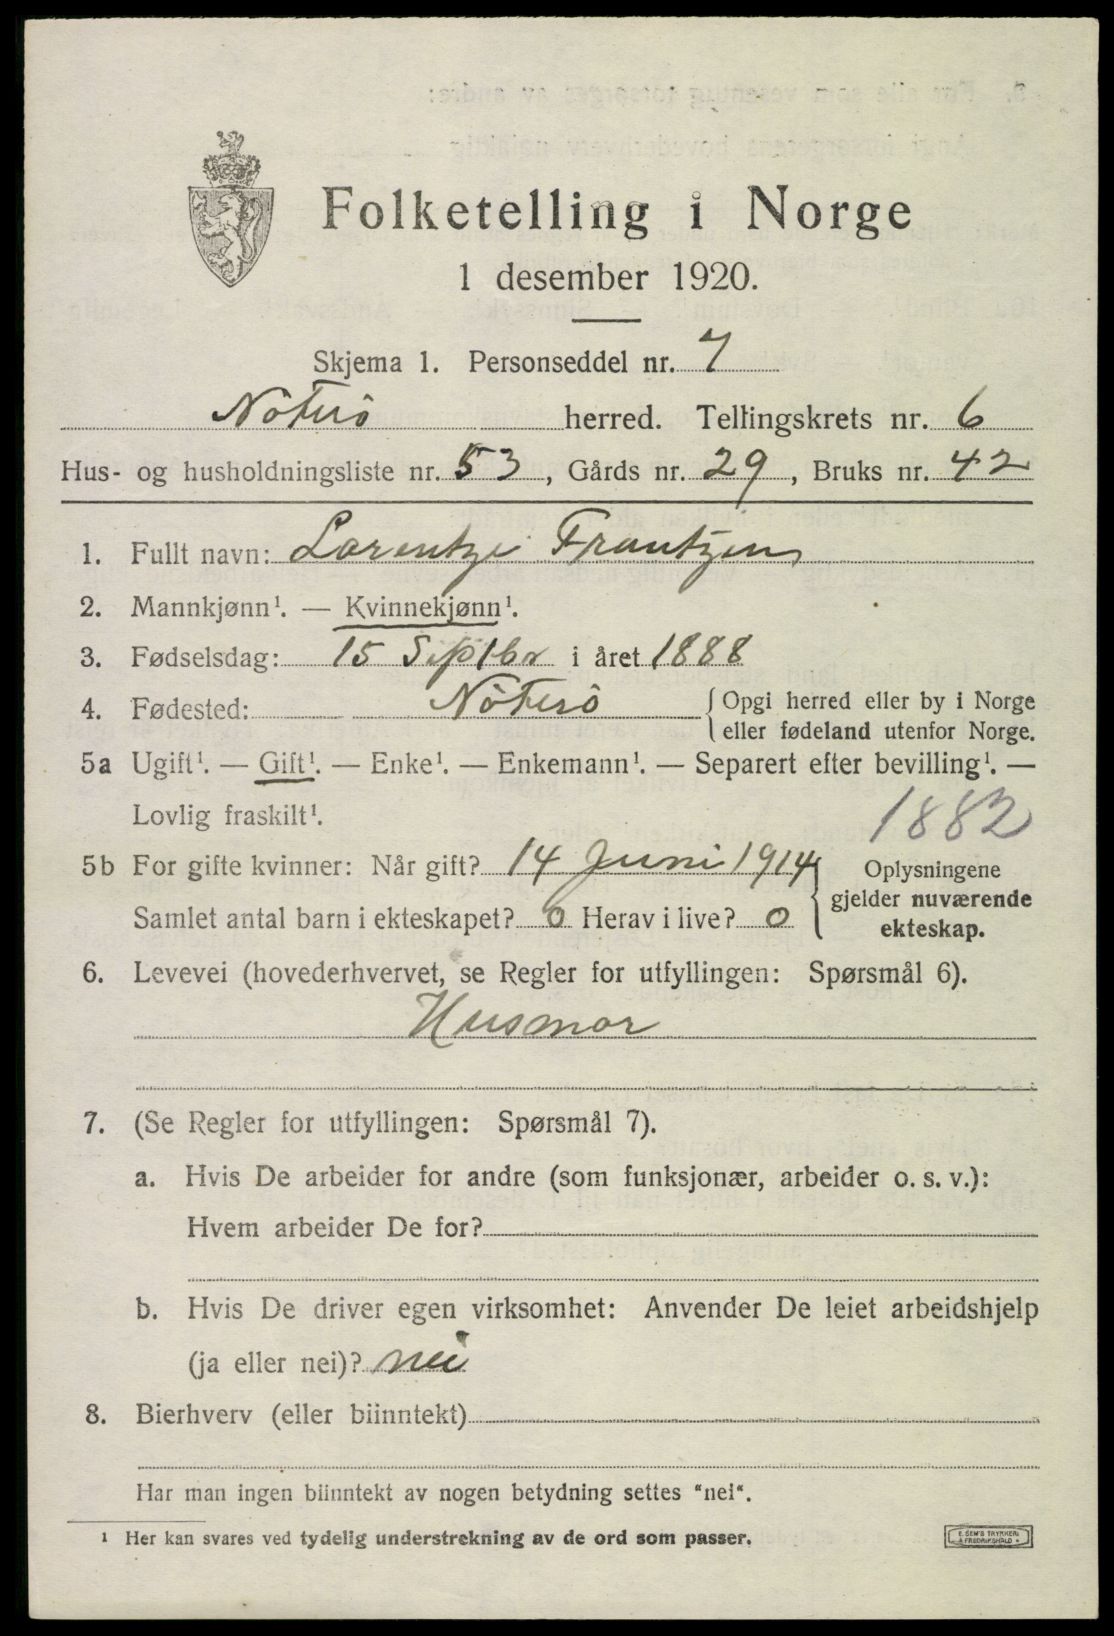 Folketelling i Norge
1 desember 1920.
Skjema 1. Personseddel nr. 7
Nöterö herred. Tellingskrets nr. 6
Hus- og husholdningsliste nr. 53, Gårds nr. 29, Bruks nr. 42
1. Fullt navn: Lorentze Frantzen
2. Mannkjønn¹. — Kvinnekjønn¹.
3. Fødselsdag: 15 Septbr i året 1888
4. Fødested: Nöterö { Opgi herred eller by i Norge
eller fødeland utenfor Norge.
5a Ugift¹. — Gift¹. — Enke¹. — Enkemann¹. — Separert efter bevilling¹. —
Lovlig fraskilt¹.
1882
5b For gifte kvinner: Når gift? 14 Juni 1914
Samlet antal barn i ekteskapet? 0 Herav i live? 0
Oplysningene
gjelder nuværende
ekteskap.
6. Levevei (hovederhvervet, se Regler for utfyllingen: Spørsmål 6).
Husmor
7. (Se Regler for utfyllingen: Spørsmål 7).
a. Hvis De arbeider for andre (som funksjonær, arbeider o. s. v.):
Hvem arbeider De for?
b. Hvis De driver egen virksomhet: Anvender De leiet arbeidshjelp
(ja eller nei)? nei
8. Bierhverv (eller biinntekt)
Har man ingen biinntekt av nogen betydning settes "nei".
¹ Her kan svares ved tydelig understrekning av de ord som passer.
E. SEM'S TRYKKERI
FREDRIKSHALD